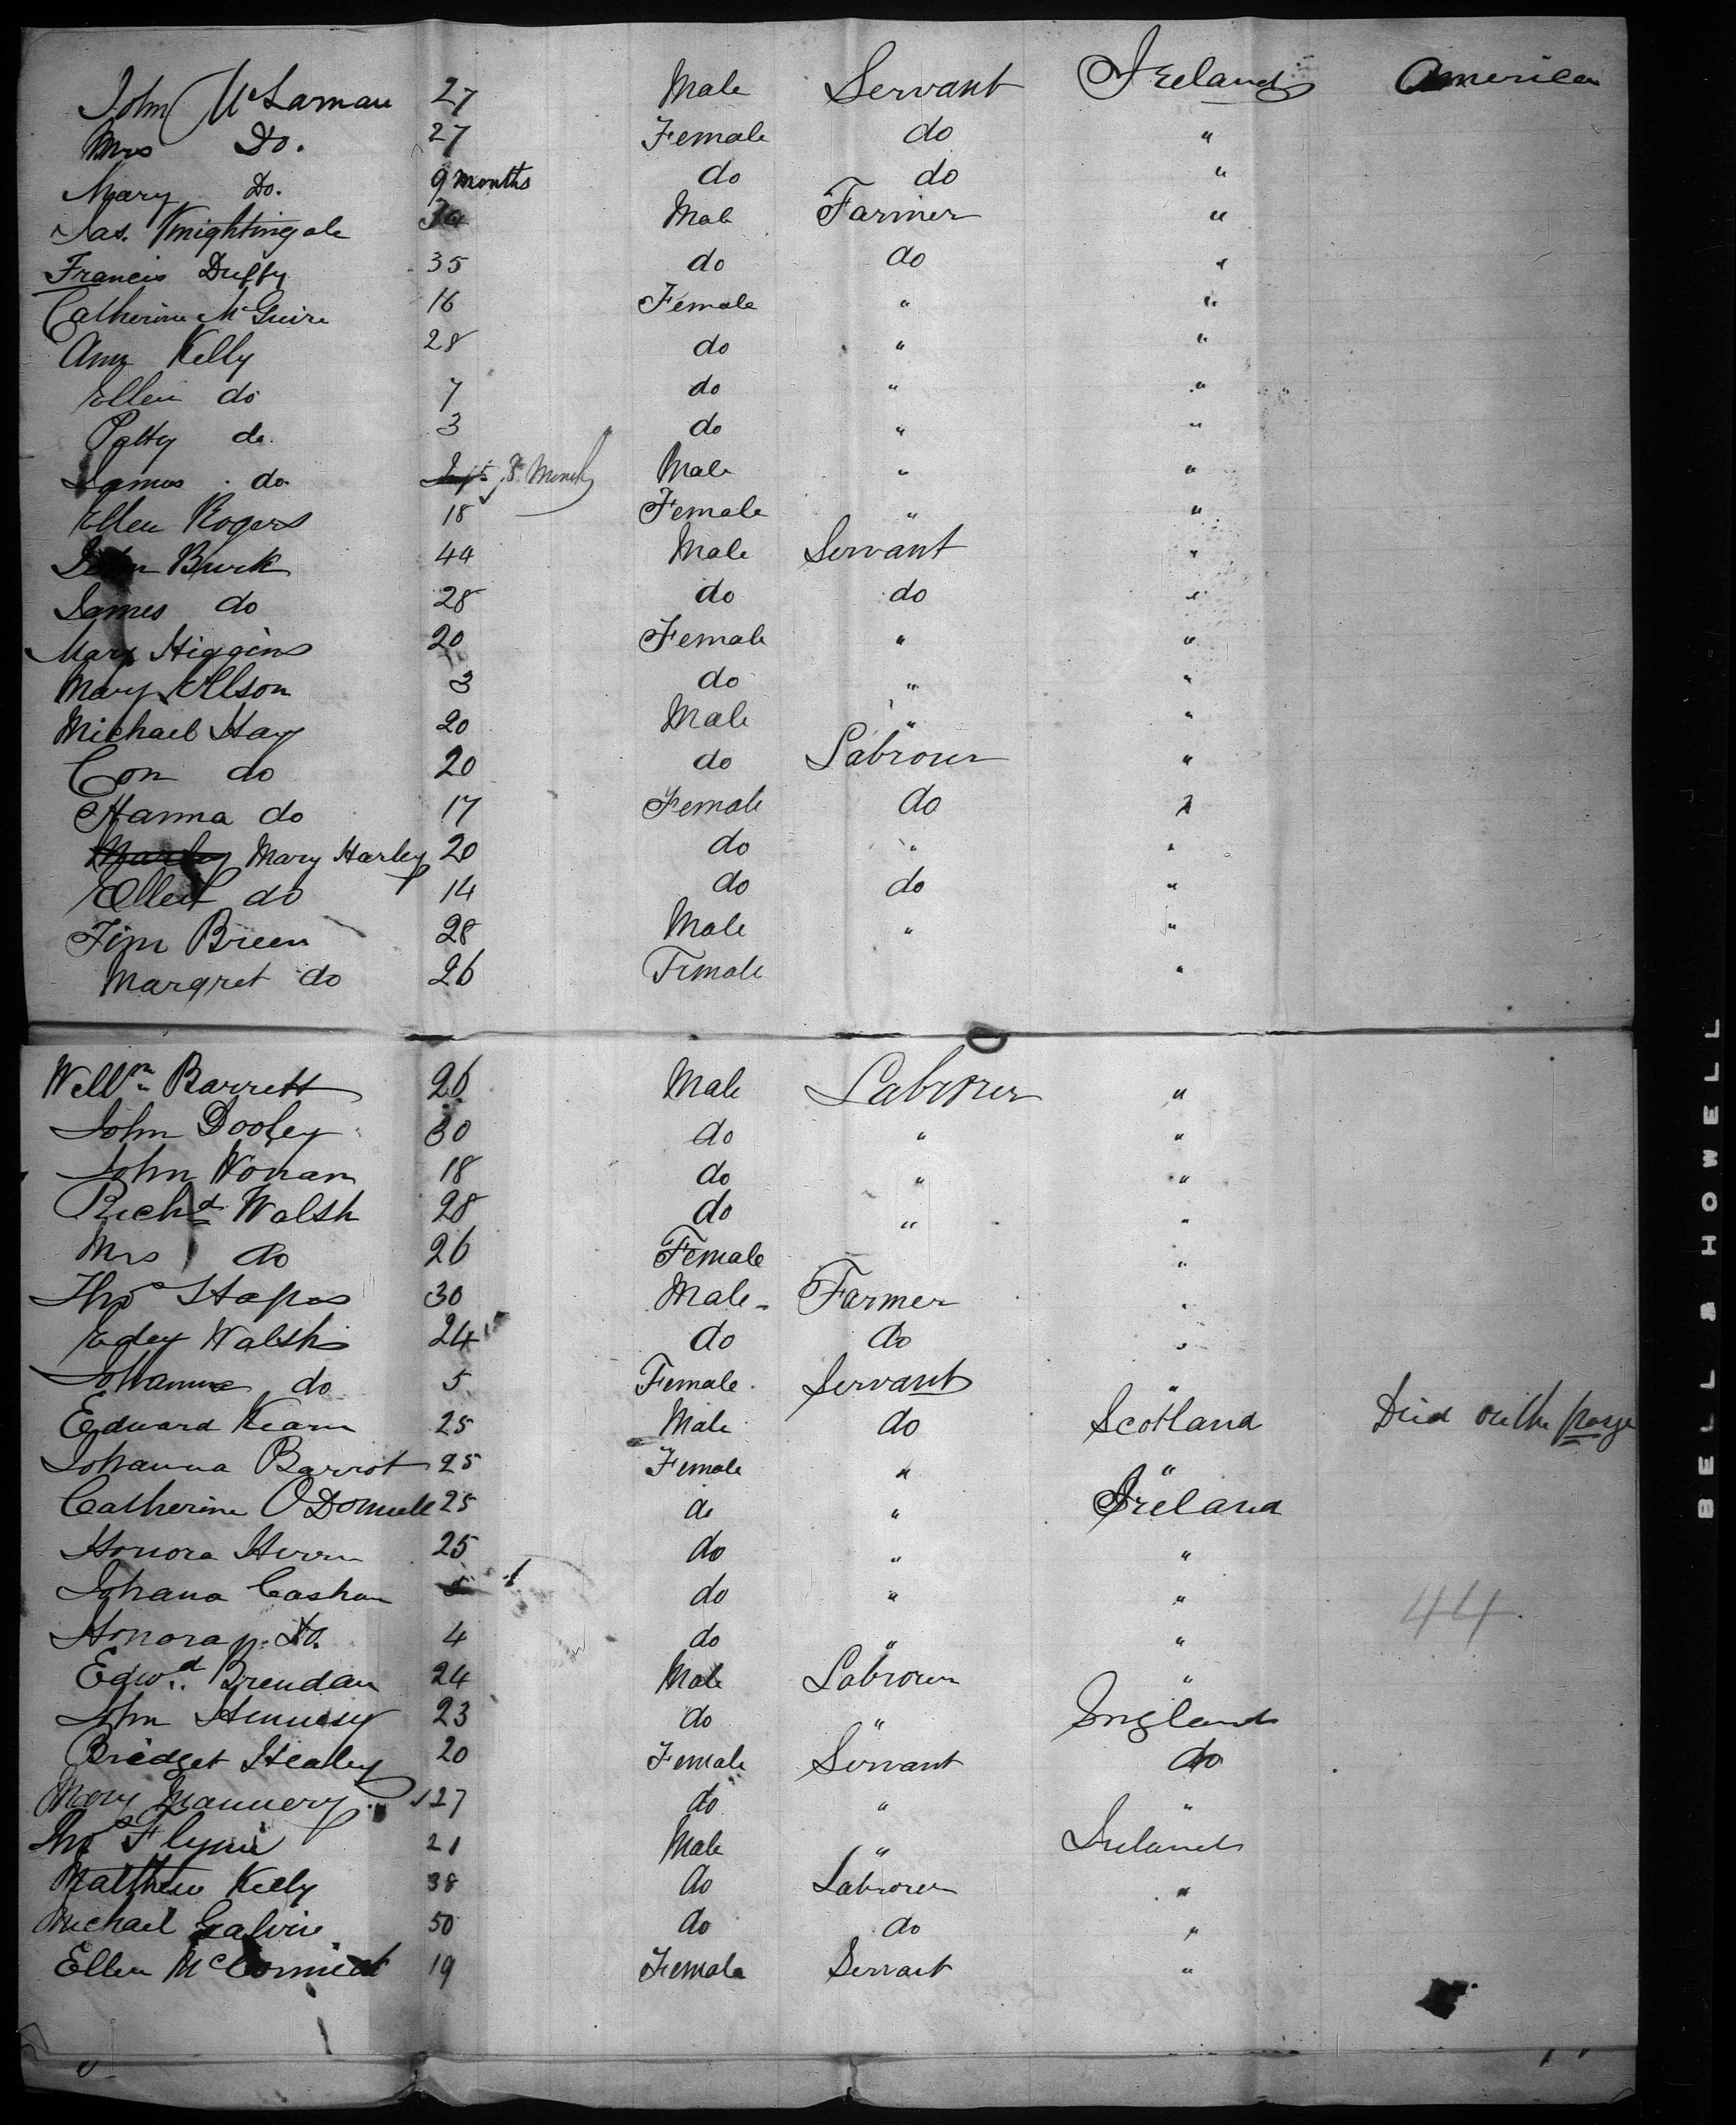 John McLarnan 27 Male Servant Ireland America
Mrs Do. 27 Female do "
Mary Do. 9 months do do "
Jas. Knightingale Male Farmer "
Francis Duffy 35 do do "
Catherine McGuire 16 Female " "
Ann Kelly 28 do " "
Ellen do 7 do " "
Patty do. 3 do " "
James do. 8 Months Male " "
Ellen Rogers 18 Female " "
John Burk 44 Male Servant "
James do 28 do do "
Mary Higgins 20 Female " "
Mary Ellson 3 do " "
Michael Hay 20 Male " "
Con do 20 do Labrour "
Hanna do 17 Female do "
Marley Mary Harley 20 do " "
Ellen do 14 do do "
Tim Breen 28 Male " "
Margret do 26 Female "
Willm Barrett 26 Male Labrour "
John Dooley 30 do " "
John Honan 18 do " "
Richd Walsh 28 do " "
Mrs do 26 Female "
Thos Stapes 30 Male Farmer "
Edey Walsh 24 do do "
Johanna do 5 Female Servant "
Edward Kearn 25 Male do Scotland Died on the passge
Johanna Barrot 25 Female " "
Catherine ODonnell 25 do " Ireland
Honora 25 do " "
Johana Cashan do " "
Honora Do. 4 do " " 44
Edwd. Brendan 24 Male Labrour "
John Hennesy 23 do " England
Bridget Healey 20 Female Servant do
Mary Mannery 27 do " "
Thos Flynn 21 Male " Ireland
Matthew Kiely 38 do Labrourer "
Michael Galvin 50 do do "
Ellen McCormick 19 Female Servant "
BELL & HOWELL